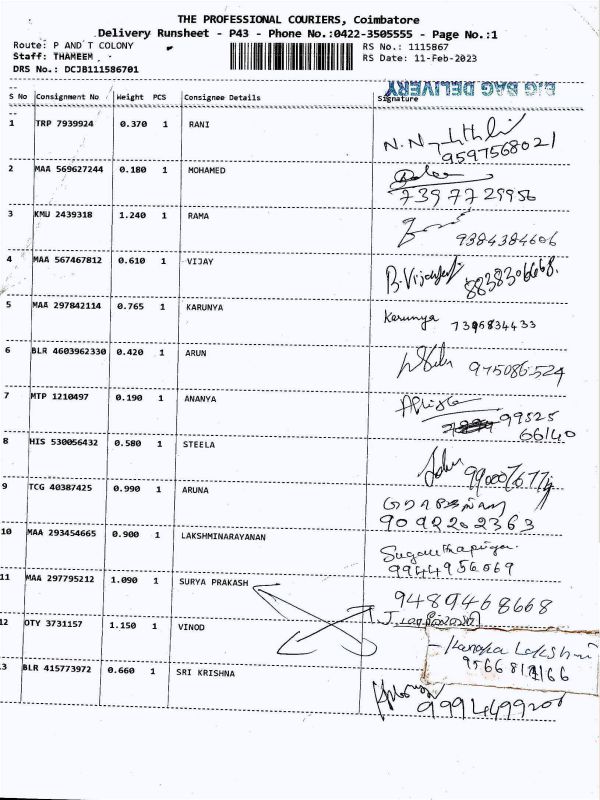 THE PROFESSIONAL COURIERS, Coimbatore
Delivery Runsheet - P43 - Phone No.:0422-3505555 - Page No.:1
Route: P AND T COLONY
RS No.: 1115867
Staff: THAMEEM
RS Date: 11-Feb-2023
DRS No.: DCJB111586701
BIG BAG DELIVERY
S No Consignment No Weight PCS Consignee Details Signature
1 TRP 7939924 0.370 1 RANI
9597568021
2 MAA 569627244 0.180 1 MOHAMED
7397729956
3 KMU 2439318 1.240 1 RAMA
9384384606
4 MAA 567467812 0.610 1 VIJAY
8838306668.
5 MAA 297842114 0.765 1 KARUNYA
Karunya 7395834433
6 BLR 4603962330 0.420 1 ARUN
975086524
7 MTP 1210497 0.190 1 ANANYA
99525
66140
8 HIS 530056432 0.580 1 STEELA
9 TCG 40387425 0.990 1 ARUNA
9092202363
10 MAA 293454665 0.900 1 LAKSHMINARAYANAN
9944956069
11 MAA 297795212 1.090 1 SURYA PRAKASH
9489468668
12 OTY 3731157 1.150 1 VINOD
13 BLR 415773972 0.660 1 SRI KRISHNA